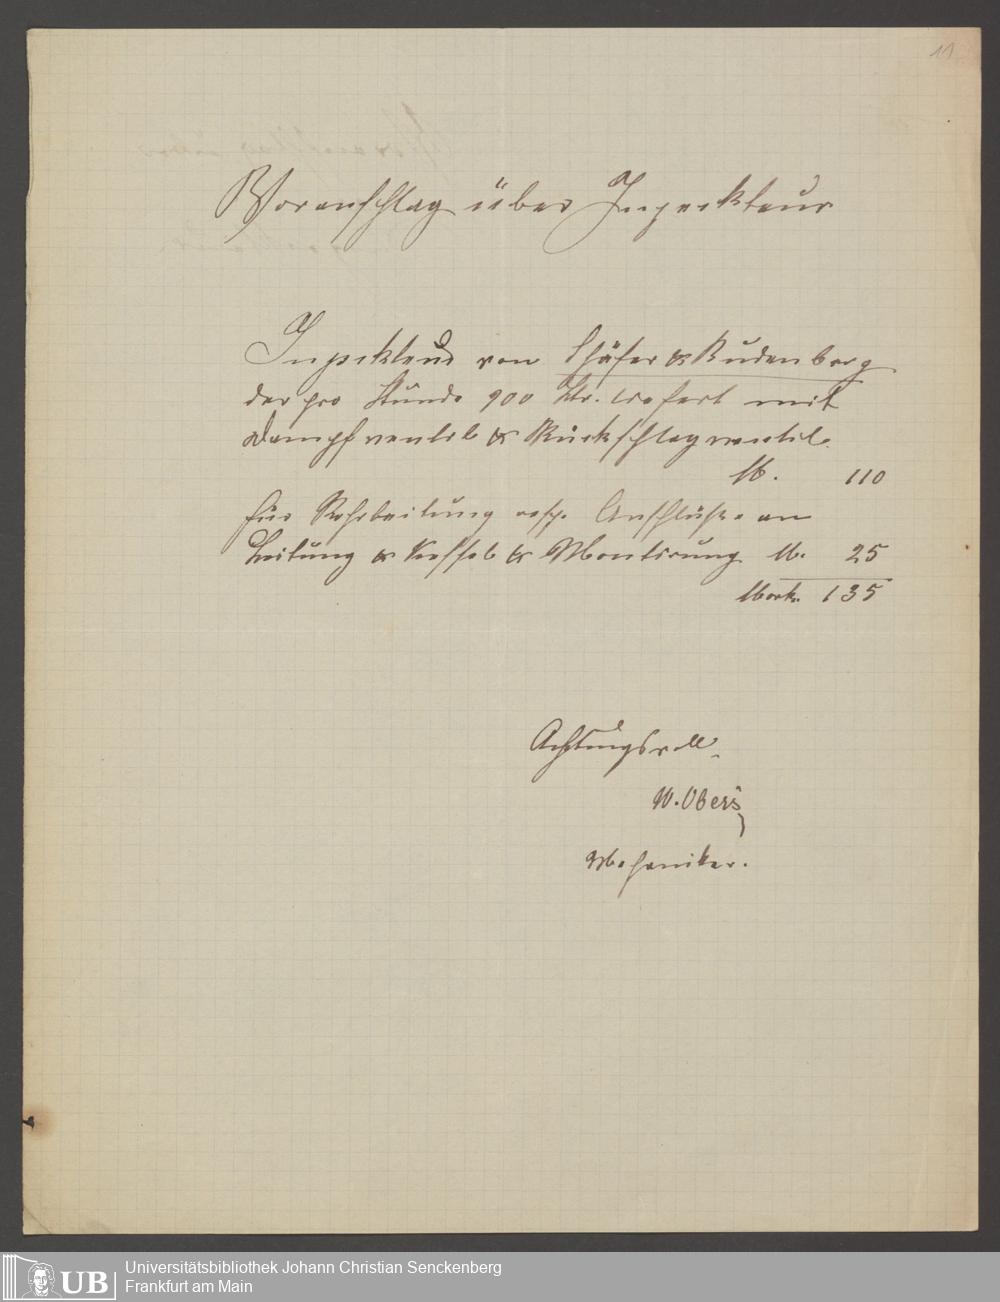 11
Voranschlag über Inspekteur
Inspekteur von Schäfer & Budenberg
der pro Stunde 900 Ltr. liefert mit
Dampfventil & Rückschlagventil.
M. 110
für Rohrleitung resp. Anschlüsse an
Leitung & Kessel & Montirung M. 25
Mark. 135
Achtungsvoll
W. Obers
Mechaniker.
UB
Universitätsbibliothek Johann Christian Senckenberg
Frankfurt am Main